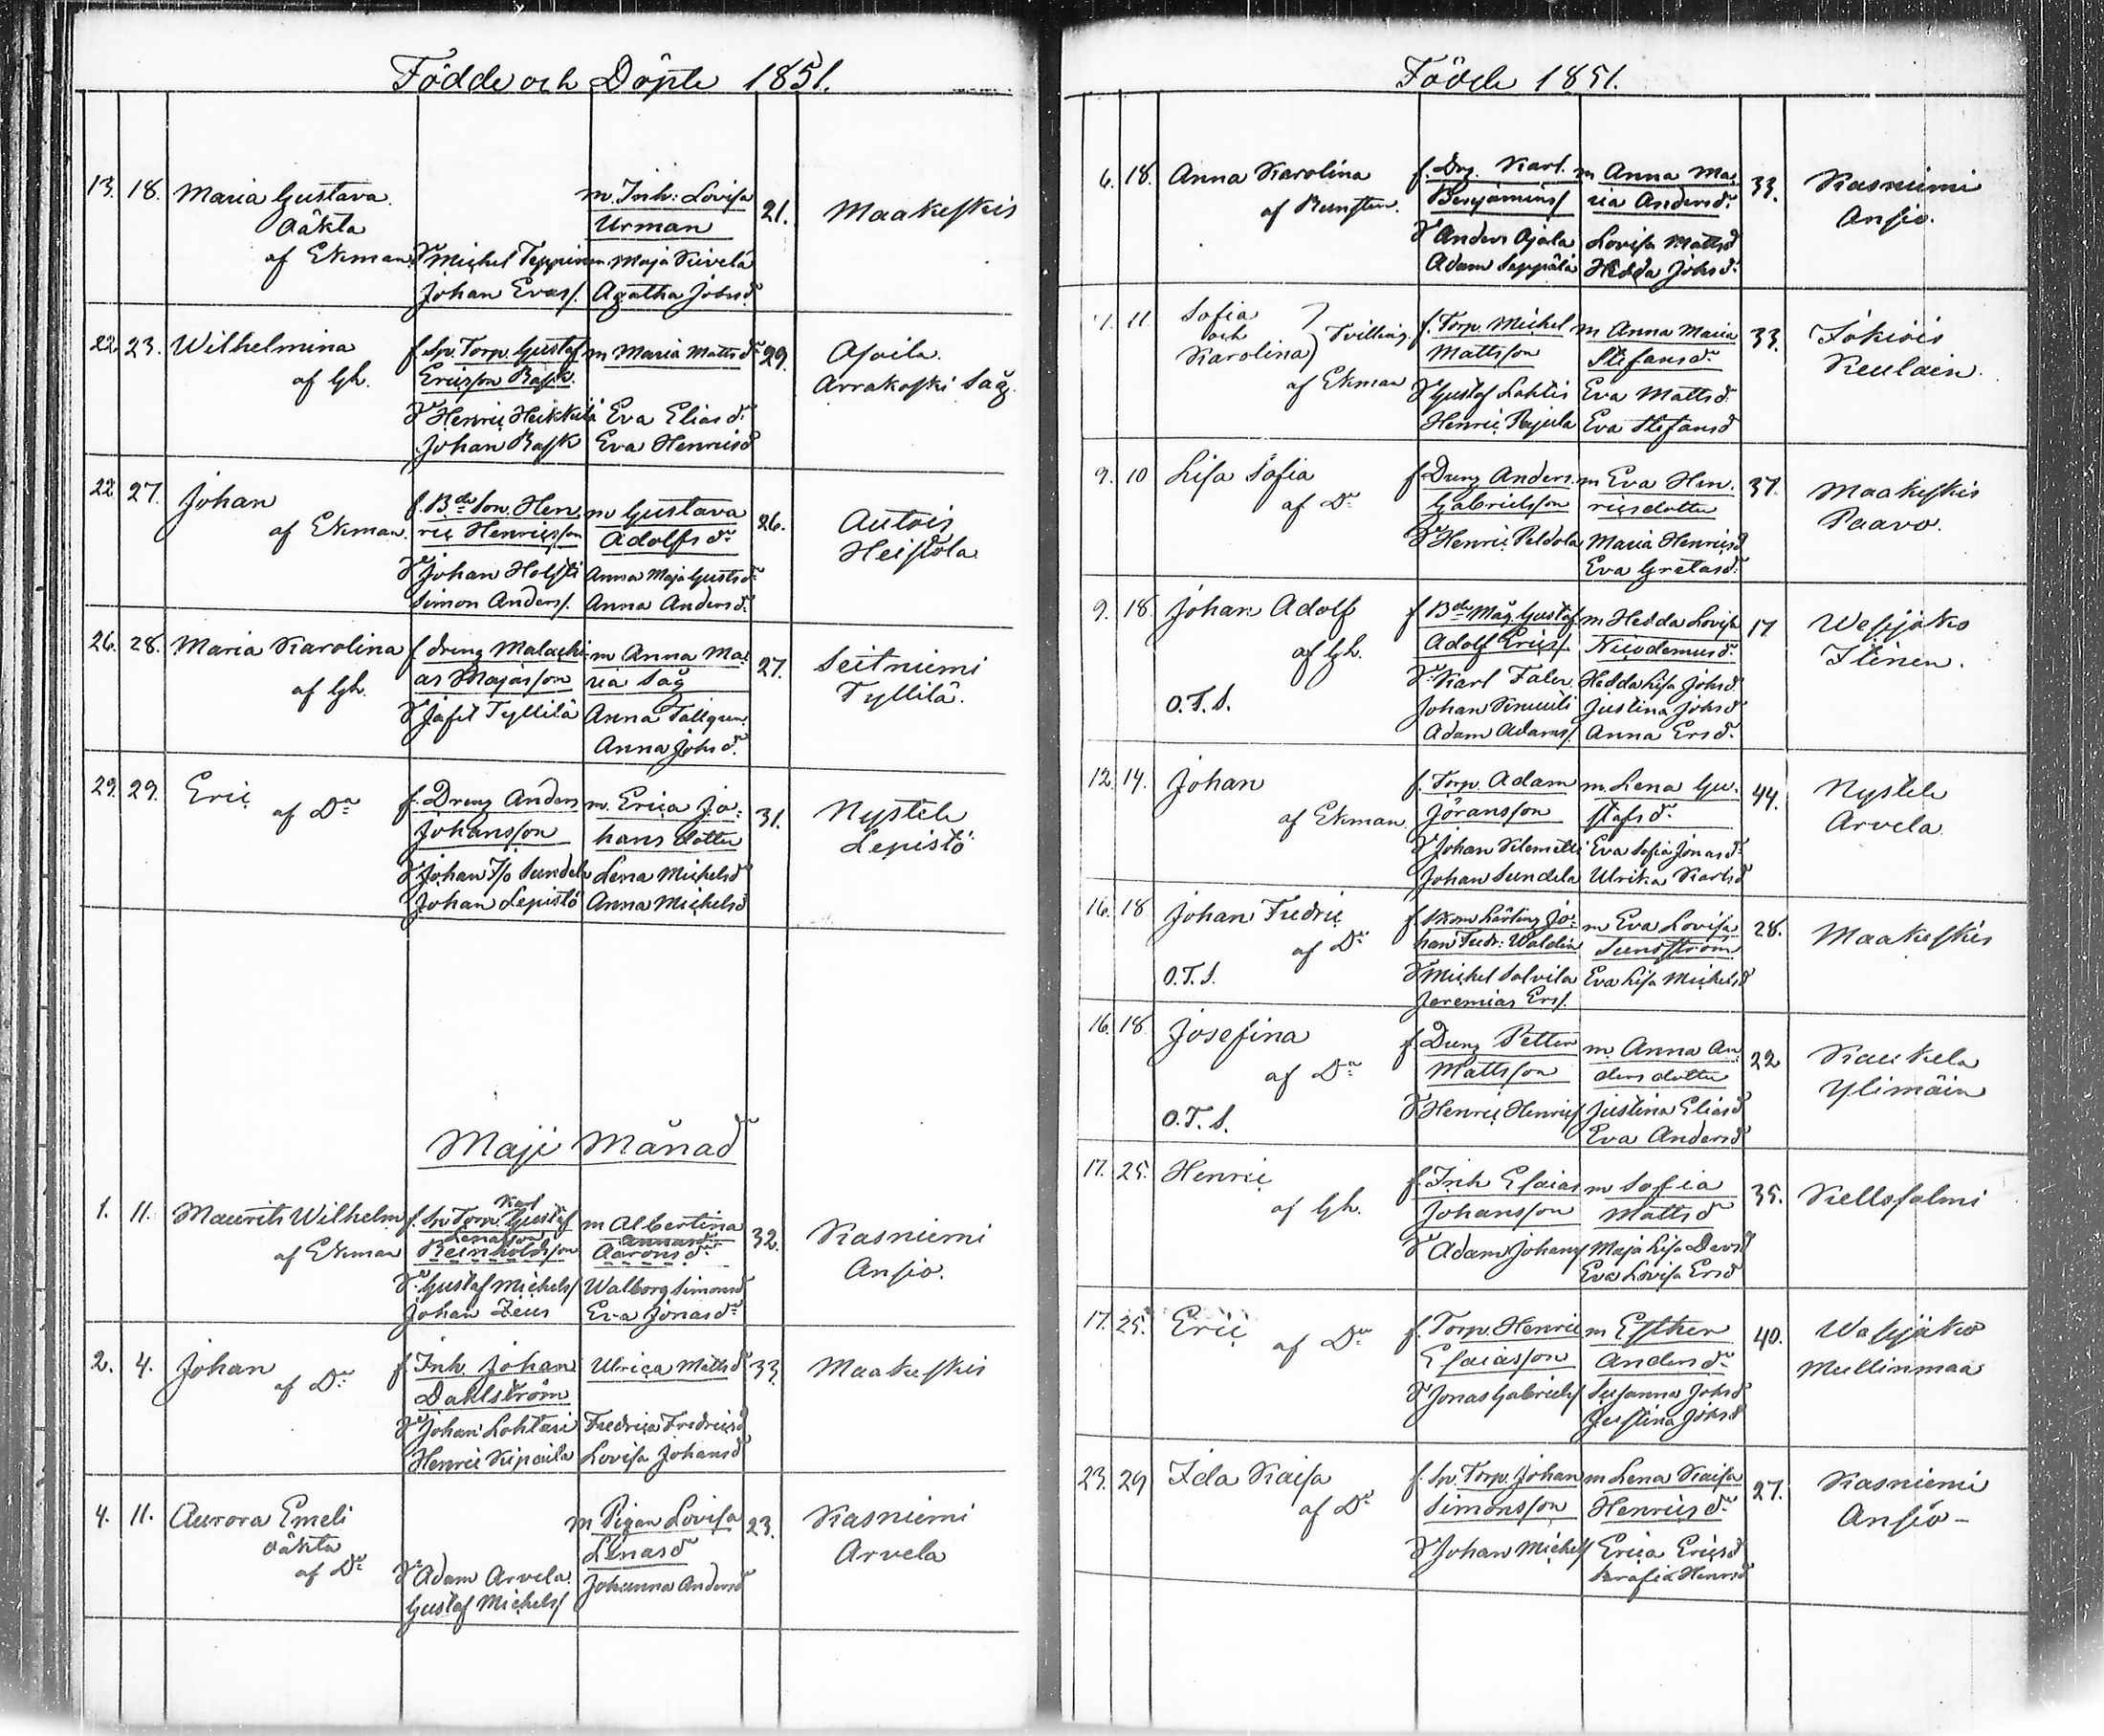 Födde och Döpte 1851.
13. 18. Maria Gustava m. Inh: Lovisa 21. Maakeskis
Oäkta Urman
af Ekman. Michel Teppinen. Maja Kivelä
Johan Evas/. Agatha Johsd
22. 23. Wilhelmina f. Sp. Torp. Gustaf m Maria Mattsd:r 29. Asoila.
af Gh. Ericsson Rask. Arrakoski Såg.
Henric Heikkilä Eva Eliasd:r
Johan Rask Eva Henricsd
22 27. Johan f. Bde Son. Hen m Gustava 26. Autois
af Ekman. ric Henricsson Adolfsd:r Heistola
Johan Holsti Anna Maja Gustsd:r
Simon Anders/. Anna Andersd:r
26. 28. Maria Karolina f dreng Malachi- m Anna Ma: 27. Seitniemi
af Gh. as Majasson ria Såg Tyllilä.
Jafet Tyllilä Anna Tallgren.
Anna Johsd:r
29. 29. Eric f. Dreng Anders m. Erica Jo: 31. Nystele
af Do Johansson hans dotter Lepistö
Johan Sundela Lena Michelsd
Johan Lepistö Anna Michelsd
Maji Månad
1. 11. Maurits Wilhelm f. Sp. Torp. Karl Gustaf m Albertina 32. Kasniemi
af Ekman Lenasson Reinholdsson Aaronsd:r Ansio.
Gustaf Michels/ Walborg Simonsd
Johan Zeus Eva Jonasd:r
2. 4. Johan f Inh. Johan Ulrica Mattsd 33. Maakeskis
af Do Dahlström
Johan Lohtari Fredrica Fredricsd
Henric Lovisa Johansd
4. 11. Aurora Emeli m Pigan Lovisa 23. Kasniemi
oäkta Lenasd Arvela
af Do Adam Arvela. Johanna Andersd
Gustaf Michels/
Födde 1851.
6. 18. Anna Karolina f. Drg. Karl. m Anna Ma: 33. Kasniemi
af Benjamins/ ria Andersd:r Ansio.
Anders Ojala Lovisa Mattsd
Adam Seppälä Hedda Johsd:r
7. 11. Sofia f. Torp. Michel m Anna Maria 33. Jokiois
och Tvilling. Mattsson Stefansd:r Keulain.
Karolina
af Ekman Gustaf Lahtis Eva Mattsd:r
Henric Pajula Eva Stefansd
9. 10 Lisa Sofia f Dreng Anders. m Eva Hen. 37. Maakeskis
af Do Gabrielsson ricsdotter Paavo.
Henric Peldola Maria Henricsd
Eva Gretasd:r
9. 18. Johan Adolf f Bde Måg Gustaf m Hedda Lovisa 17 Wesijako
af Gh. Adolf Erics/. Nicodemusd:r Ilinen.
Karl Faler Hedda Lisa Johsd.
O.T.S. Johan Justina Johsd
Adam Adams/. Anna Ersd:r
12. 14. Johan f. Torp. Adam m. Lena Gu. 44. Nystele
af Ekman Jöransson stafsd:r Arvela
Johan Klemetti Eva Sofia Jonasd:r
Johan Sundela Ulrika Karlsd
16. 18 Johan Fredric f. Skom Lärling Jo: m Eva Lovisa 28. Maakeskis
af Do han Fredr: Waldin Sundström
O.T.S. Michel Salvila Eva Lisa Michelsd
Jeremias Ers/.
16. 18 Josefina f. Dreng Petter m Anna An 22 Kaukela
af Do Mattsson dersdotter Ylimäin
O.T.S. Henric Henrics/ Justina Eliasd
Eva Andersd
17. 25. Henric f. Inh Esaias m Sofia 35. Kellosalmi
af Gh. Johansson Mattsd
Adam Johans/ Maja Lisa Davsd
Eva Lovisa Ersd
17. 25. Eric f. Torp. Henric m Esther 40. Wesijako
af Do Esaiasson Andersd:r Mullinmaa
Jonas Gabriels/ Susanna Johsd
Justina Johsd
23. 29 Ida Kaisa f. Sp. Torp. Johan m Lena Kaisa 27. Kasniemi
af Do Simonsson Henricsd:r Ansio-
Johan Michels/ Erica Ericsd
Serafia Henrsd